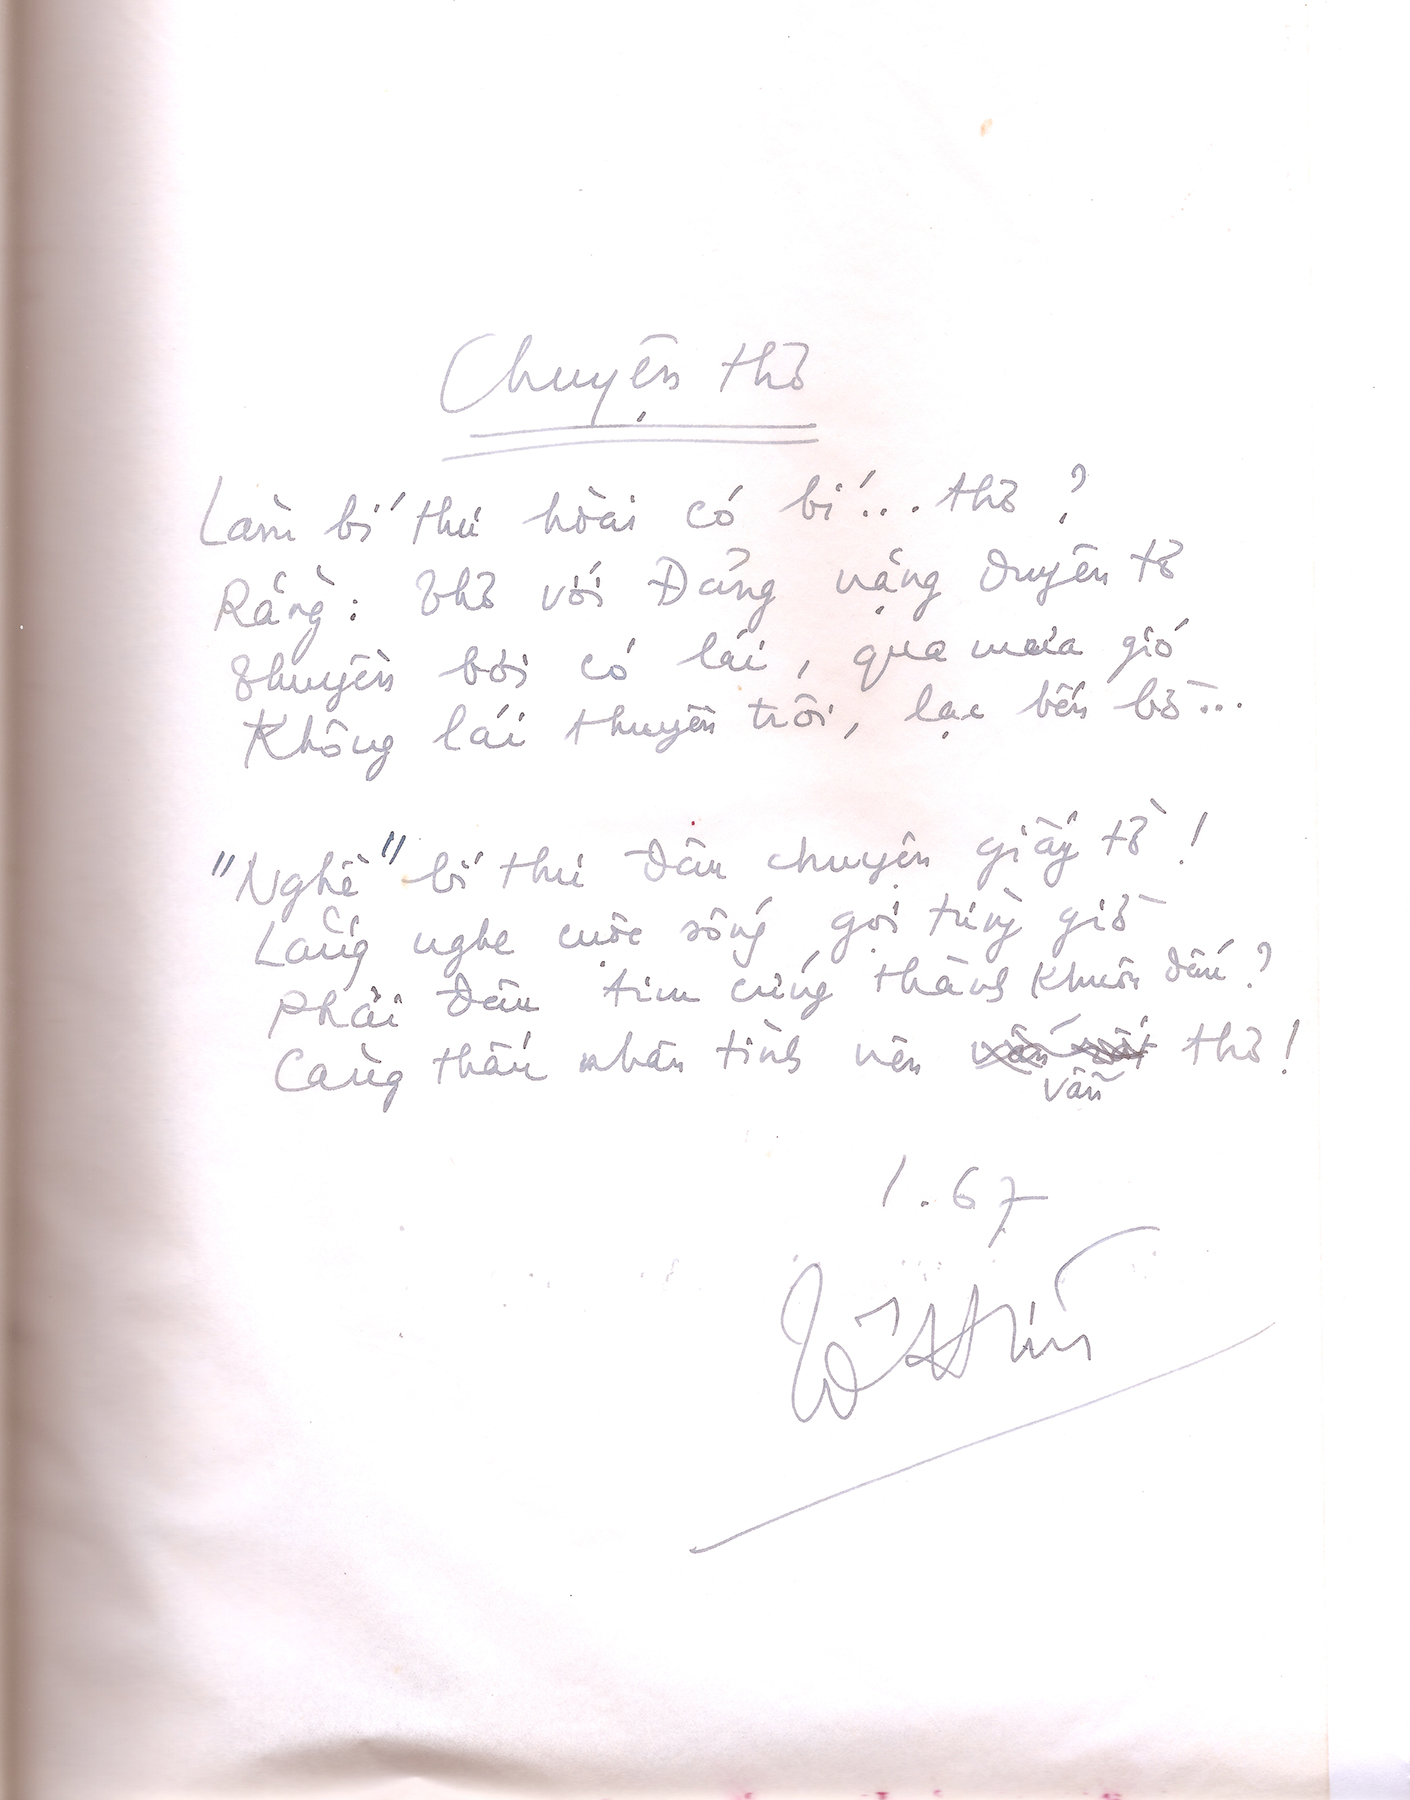 Chuyện thơ
Làm bí thư hoài có bí... thơ?
Rằng: thơ với Đảng nặng duyên tơ
Thuyền bơi có lái, qua mưa gió
Không lái thuyền trôi, lạc bến bờ...
"Nghề" bí thư đâu chuyện giấy tờ!
Lắng nghe cuộc sống gọi từng giờ
Phải đâu tim cứng thành khuôn dấu?
Càng thấu nhân tình nên thơ!
vẫn
1.67
Tố Hữu